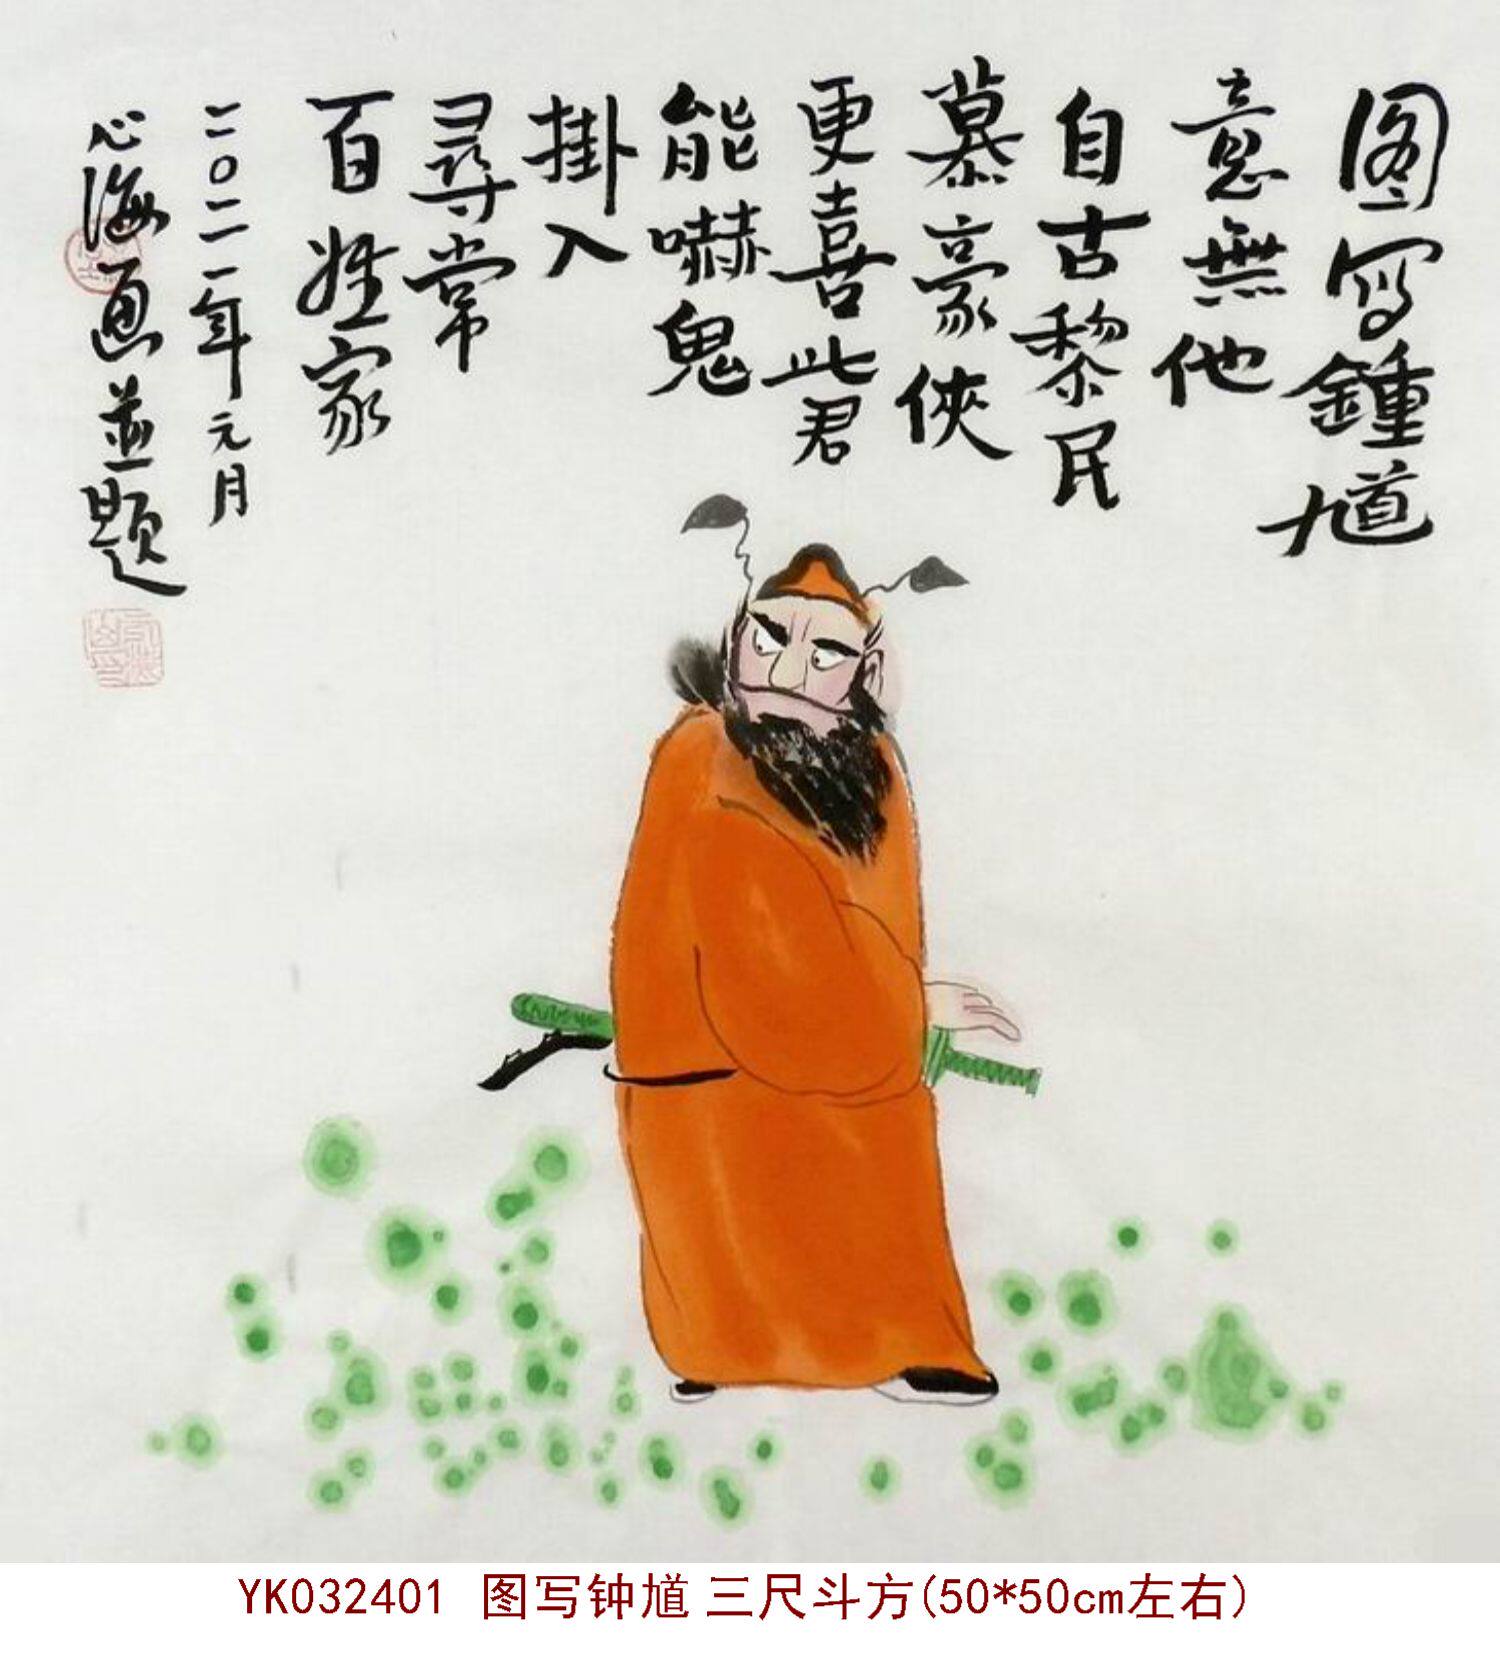 图写鍾馗
意無他
自古黎民
慕豪俠
更喜此君
能嚇鬼
掛入
尋常
百姓家
二〇二一年元月
心海画並题
YK032401 图写钟馗 三尺斗方(50*50cm左右)